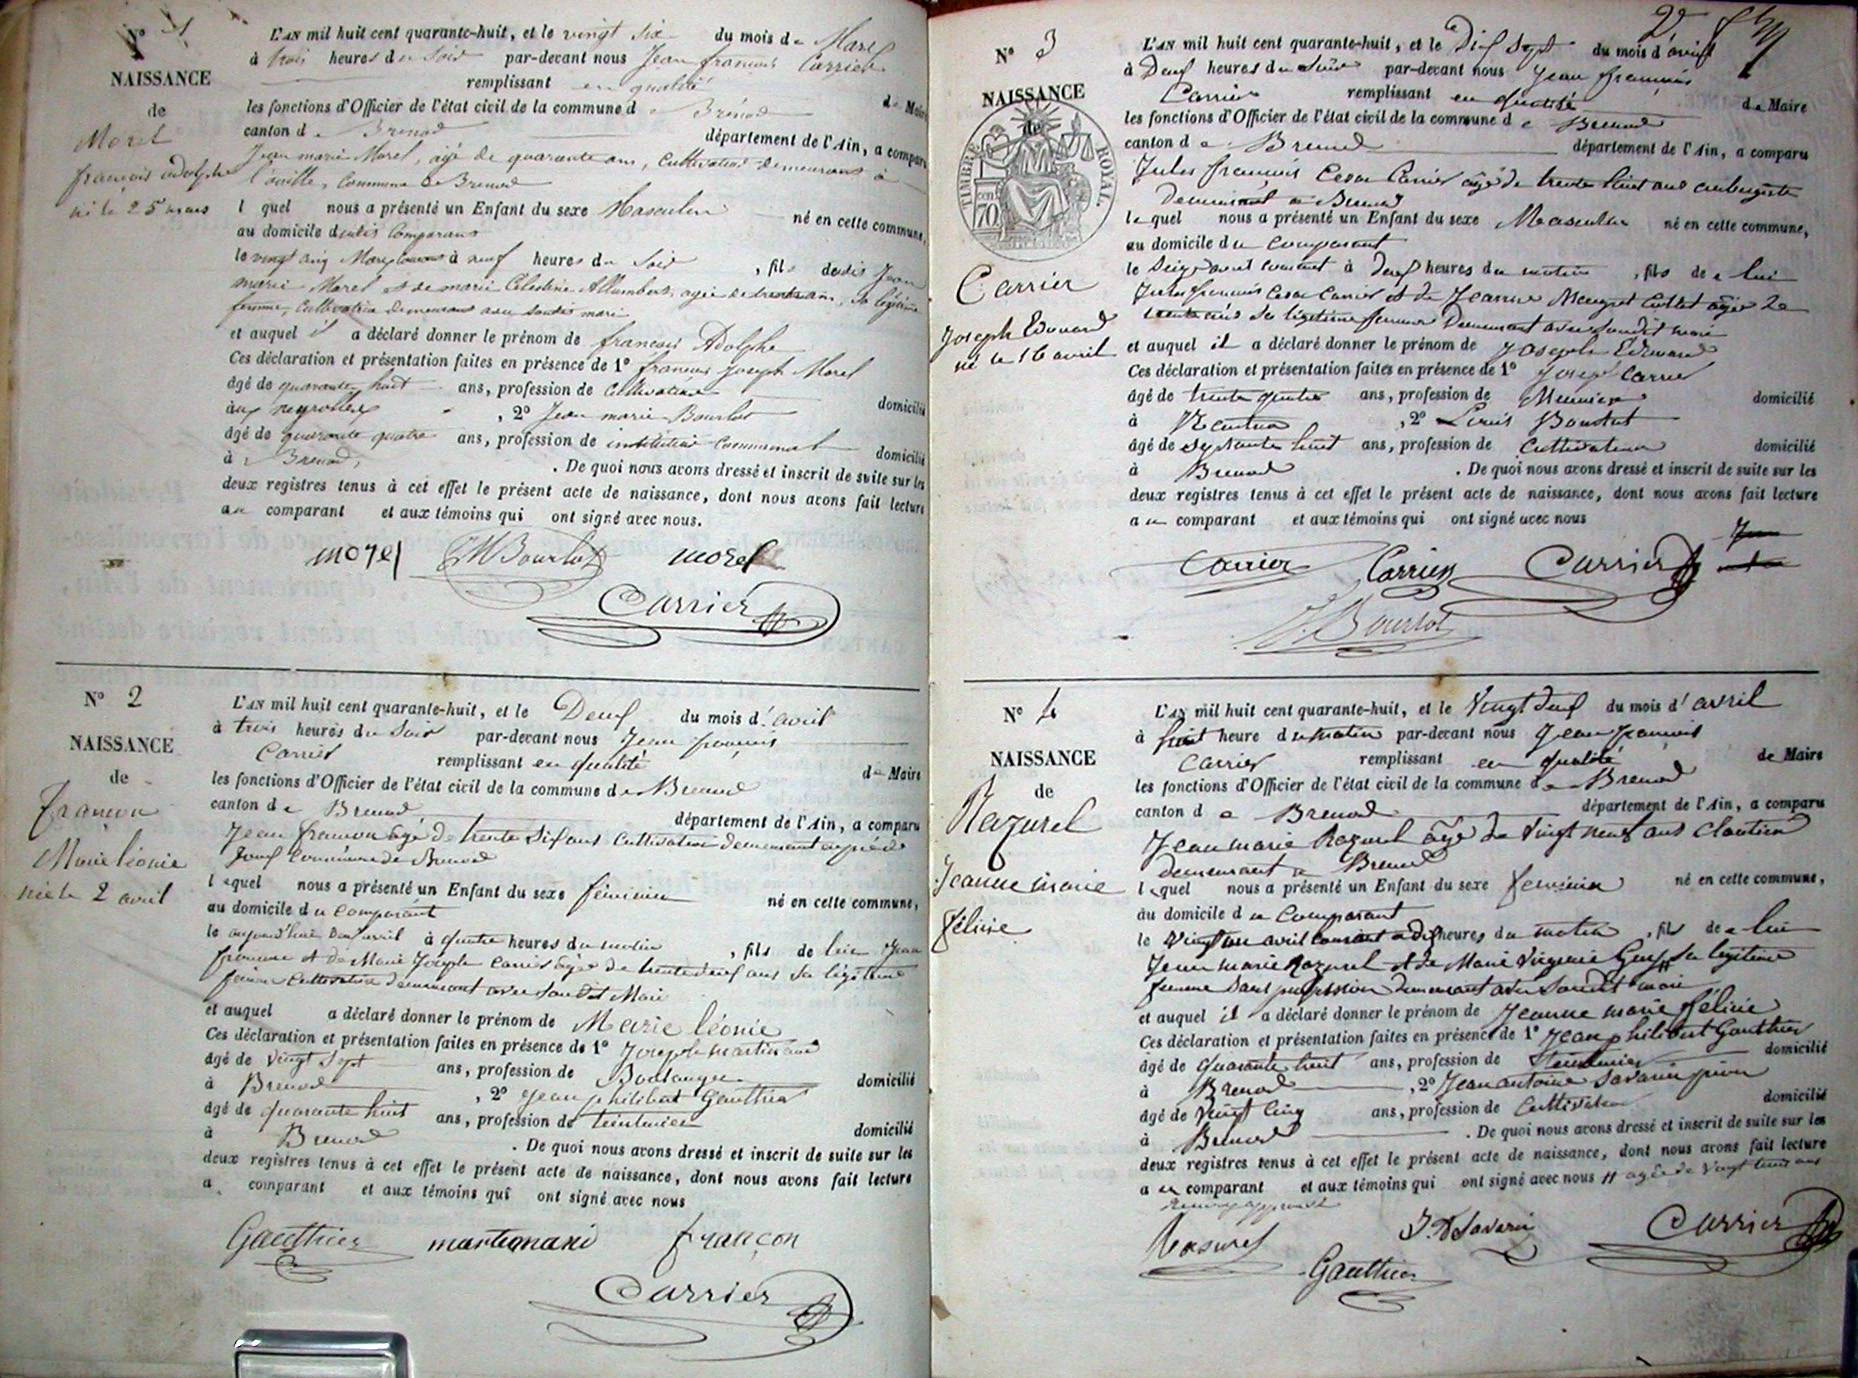 N° 1
NAISSANCE
de
Morel
françois adolphe
né le 25 mars
L'AN mil huit cent quarante-huit, et le vingt six du mois de Mars
à trois heures du Soir par-devant nous Jean françois Carrier
remplissant en qualité de Maire
les fonctions d'Officier de l'état civil de la commune de Brénod
canton de Brenod département de l'Ain, a comparu
Jean marie Morel, âgé de quarante ans, Cultivateur demeurant à
commune de Brenod
lequel nous a présenté un Enfant du sexe Masculin né en cette commune,
au domicile dudit Comparant
le vingt cinq Mars courant à neuf heures du Soir, fils dudit Jean
marie Morel et de marie Célestine Allombert, agée de trente ans, sa légitime
femme, Cultivatrice demeurant avec sondit mari
et auquel il a déclaré donner le prénom de françois Adolphe
Ces déclaration et présentation faites en présence de 1° françois Joseph Morel
âgé de quarante huit ans, profession de Cultivateur domicilié
aux neyrolles, 2° Jean marie Bourlot
âgé de quarante quatre ans, profession de instituteur Communal domicilié
à Brenod, . De quoi nous avons dressé et inscrit de suite sur les
deux registres tenus à cet effet le présent acte de naissance, dont nous avons fait lecture
au comparant et aux témoins qui ont signé avec nous.
morel JMBourlot morel
Carrier
N° 2
NAISSANCE
de
françon
Marie léonie
née le 2 avril
L'AN mil huit cent quarante-huit, et le Deux du mois d'avril
à trois heures du Soir par-devant nous Jean françois
Carrier remplissant en qualité de Maire
les fonctions d'Officier de l'état civil de la commune de Brenod
canton de Brenod département de l'Ain, a comparu
Jean françon âgé de trente six ans Cultivateur demeurant
Commune de Brenod
lequel nous a présenté un Enfant du sexe féminin né en cette commune,
au domicile du comparant
le aujourd'hui Deux avril à quatre heures du matin, fils de lui Jean
françon et de Marie Joseph Carrier âgée de trente deux ans Sa légitime
femme Cultivatrice demeurant avec Son dit Mari
et auquel a déclaré donner le prénom de Marie léonie
Ces déclaration et présentation faites en présence de 1° Joseph martinand
âgé de vingt sept ans, profession de Boulanger domicilié
à Brenod, 2° Jean philibert Gauthier
âgé de quarante huit ans, profession de teinturier domicilié
à Brenod . De quoi nous avons dressé et inscrit de suite sur les
deux registres tenus à cet effet le présent acte de naissance, dont nous avons fait lecture
a comparant et aux témoins qui ont signé avec nous
Gauthier martignand françon
Carrier
2e
N° 3
NAISSANCE
de
TIMBRE ROYAL
70
Carrier
Joseph Edouard
né le 16 avril
L'AN mil huit cent quarante-huit, et le Dix Sept du mois d'avril
à Deux heures du Soir par-devant nous Jean françois
Carrier remplissant en qualité de Maire
les fonctions d'Officier de l'état civil de la commune de Brenod
canton de Brenod département de l'Ain, a comparu
Jules françois Cesar Carrier âgé de trente huit ans aubergiste
demeurant à Brenod
lequel nous a présenté un Enfant du sexe Masculin né en cette commune,
au domicile du comparant
le Seize avril courant à Deux heures du matin, fils de lui
Jules françois Cesar Carrier et de Jeanne Cottet âgée de
trente ans Sa légitime femme Demeurant avec Sondit mari
et auquel il a déclaré donner le prénom de Joseph Edouard
Ces déclaration et présentation faites en présence de 1° Joseph Carrier
âgé de trente quatre ans, profession de Meunier domicilié
à , 2° Louis Bourlot
âgé de soixante huit ans, profession de Cultivateur domicilié
à Brenod . De quoi nous avons dressé et inscrit de suite sur les
deux registres tenus à cet effet le présent acte de naissance, dont nous avons fait lecture
au comparant et aux témoins qui ont signé avec nous
Carrier Carrier Carrier
Bourlot
N° 4
NAISSANCE
de
Razurel
Jeanne marie
féline
L'AN mil huit cent quarante-huit, et le Vingt deux du mois d'avril
à huit heure du matin par-devant nous Jean françois
Carrier remplissant en qualité de Maire
les fonctions d'Officier de l'état civil de la commune de Brenod
canton de Brenod département de l'Ain, a comparu
Jean marie Razurel âgé de Vingt neuf ans cloutier
demeurant à Brenod
lequel nous a présenté un Enfant du sexe féminin né en cette commune,
au domicile du Comparant
le Vingt un avril courant à dix heures du matin, fils de lui
Jean marie Razurel et de Marie Virginie Guy Sa légitime
femme Sans profession demeurant avec Sondit mari
et auquel il a déclaré donner le prénom de Jeanne marie féline
Ces déclaration et présentation faites en présence de 1° Jean philibert Gauthier
âgé de quarante huit ans, profession de teinturier domicilié
à Brenod, 2° Jean antoine Savarin
âgé de vingt cinq ans, profession de Cultivateur domicilié
à Brenod . De quoi nous avons dressé et inscrit de suite sur les
deux registres tenus à cet effet le présent acte de naissance, dont nous avons fait lecture
au comparant et aux témoins qui ont signé avec nous # agée de Vingt ans
renvoy approuvé
Rasurel J. A Savarin Carrier
Gauthier